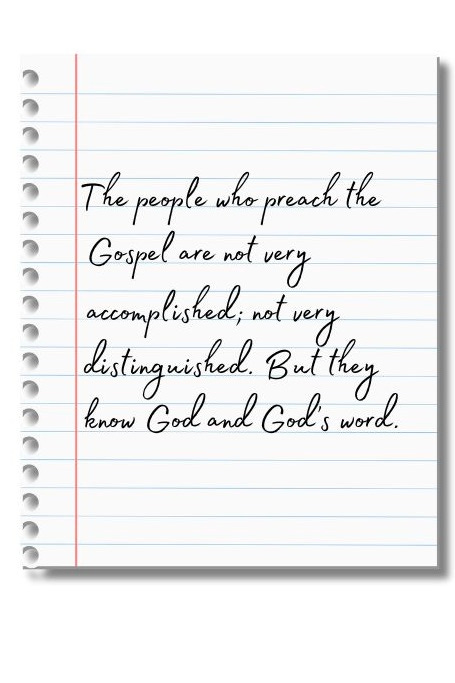 The people who preach the
Gospel are not very
accomplished; not very
distinguished. But they
know God and God's word.